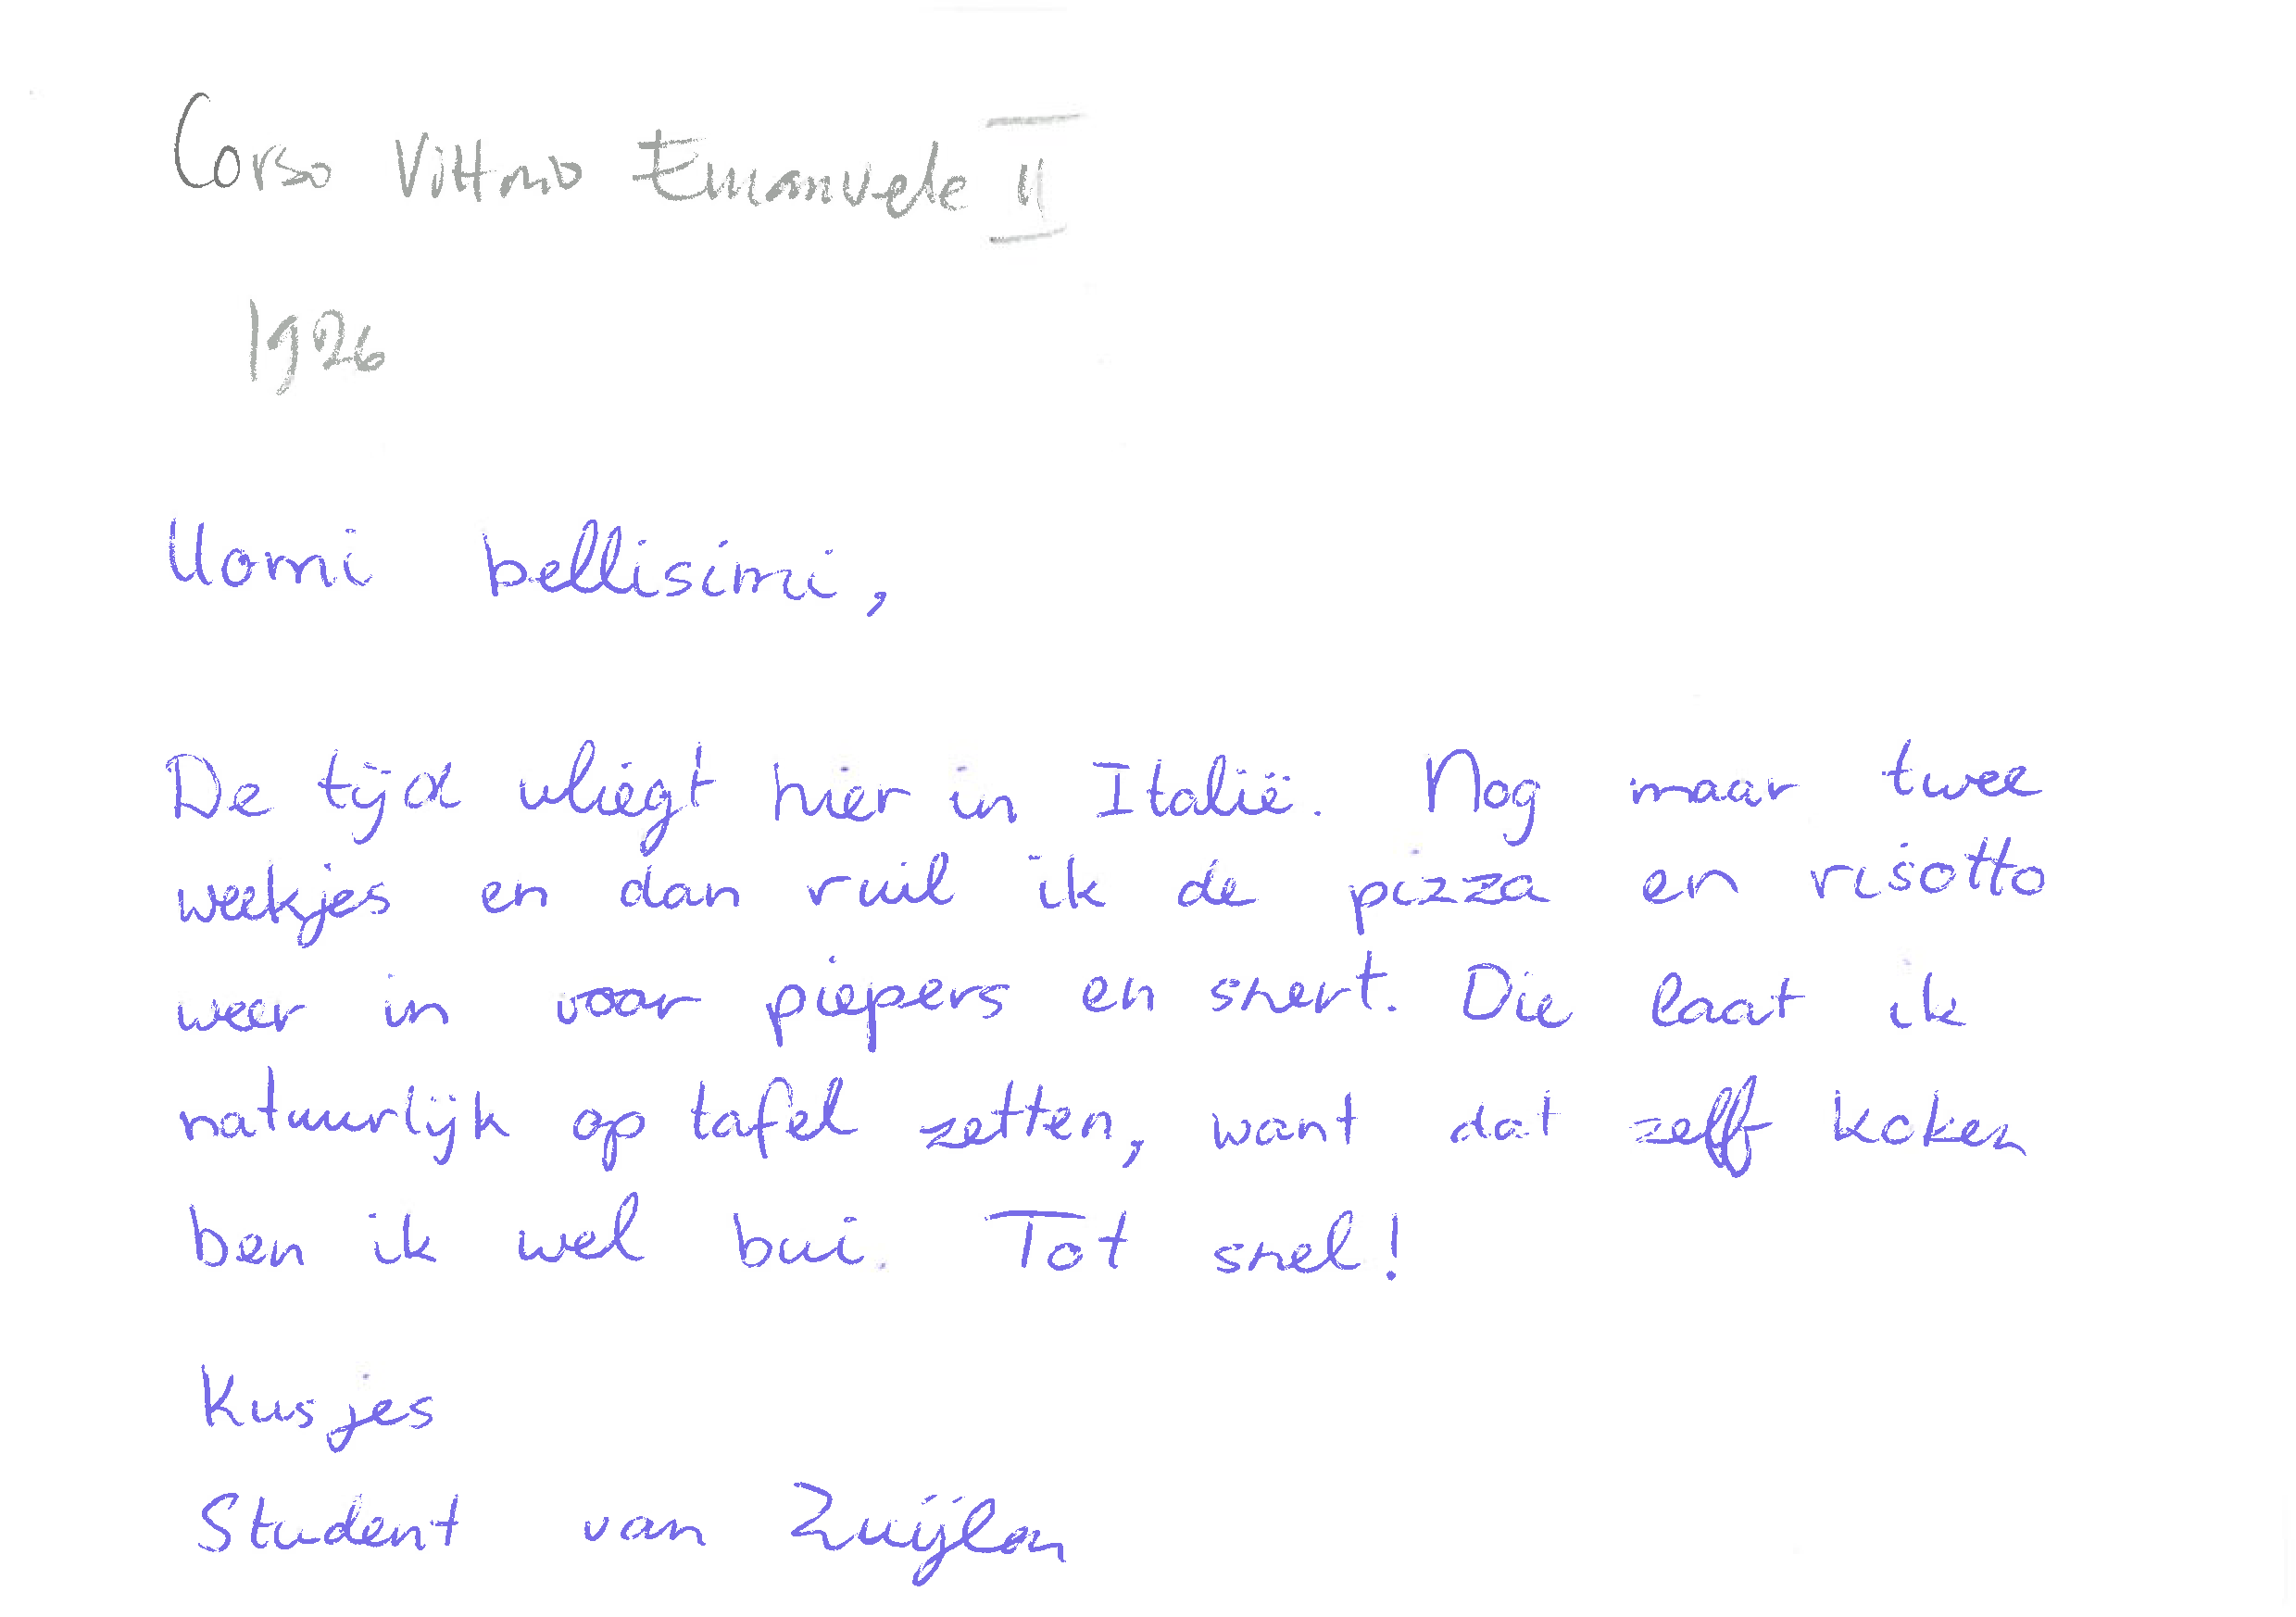 Corso Vittorio Emanuele II
1926
Uomi bellisimi,
De tijd vliegt hier in Italië. Nog maar twee
weekjes en dan ruil ik de pizza en risotto
weer in voor piepers en snert. Die laat ik
natuurlijk op tafel zetten, want dat zelf koken
ben ik wel bui. Tot snel!
Kusjes
Student van Zuijlen